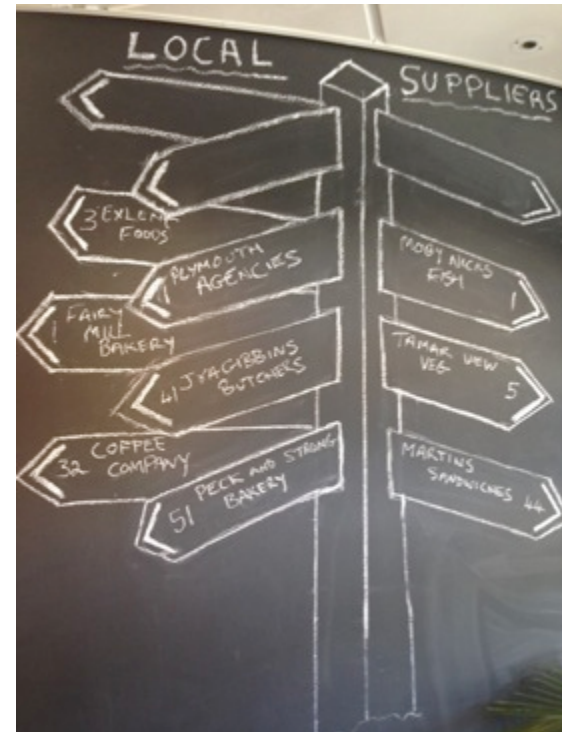 LOCAL
SUPPLIERS
3 EXLENT
FOODS
PLYMOUTH
AGENCIES
1 FAIRY
MILL
BAKERY
41 JYAGIBBINS
BUTCHERS
32 COFFEE
COMPANY
51 PECK AND STRONG
BAKERY
MOBY NICKS
FISH 1
TAMAR VIEW
VEG 5
MARTINS
SANDWICHES 44